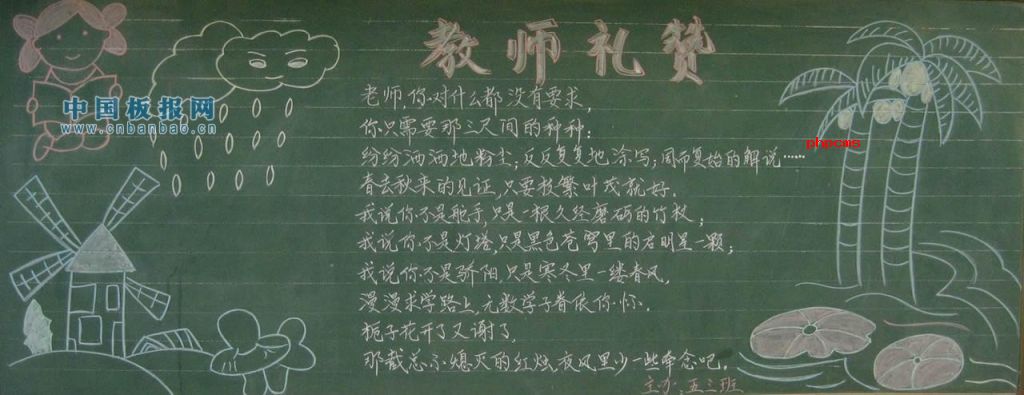 教师礼赞
中国板报网
www.cnbanbao.cn
老师,你对什么都没有要求,
你只需要那三尺间的种种:
纷纷洒洒地粉尘;反反复复地涂写;周而复始的解说……
phpcms
春去秋来的见证,只要枝繁叶茂就好.
我说你不是舵手,只是一根久经磨砺的竹杖;
我说你不是灯塔,只是黑色苍穹里的启明星一颗;
我说你不是骄阳,只是寒冬里一缕春风,
漫漫求学路上,无数学子眷依你怀.
栀子花开了又谢了,
那截总不熄灭的红烛,夜风里少一些牵念吧。
主办:五三班